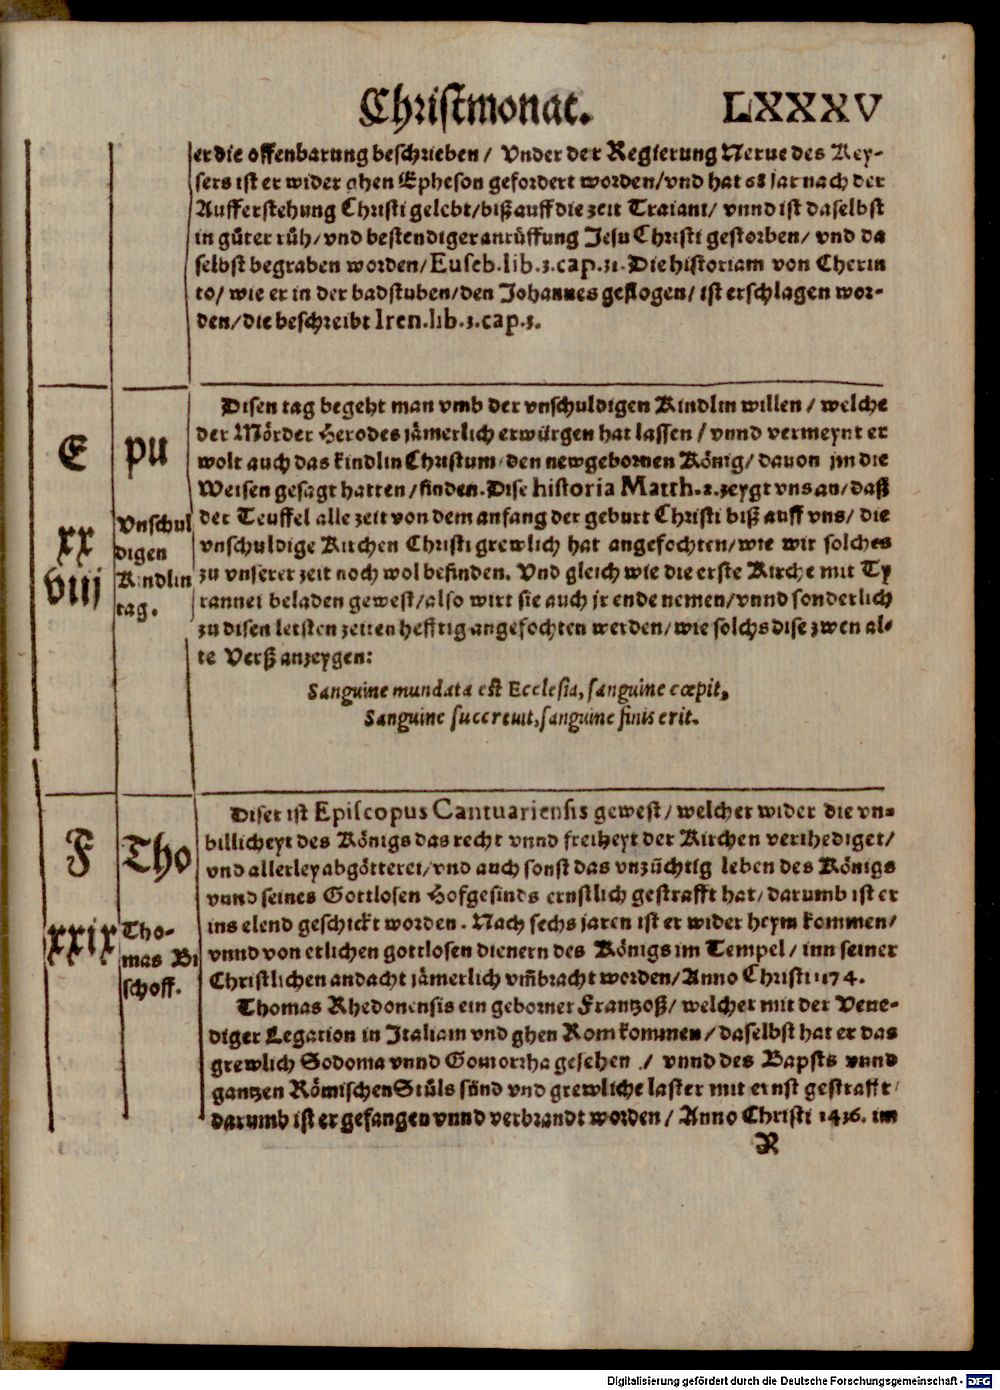 Christmonat. LXXXV
er die offenbarung beschrieben / Vnder der Regierung Nerue des Key-
sers ist er wider ghen Epheson gefordert worden/vnd hat 68 jar nach der
Aufferstehung Christi gelebt/biß auff die zeit Traiani/ vnnd ist daselbst
in gůter růh/vnd bestendiger anrůffung Jesu Christi gestorben/ vnd da
selbst begraben worden/Euseb.lib.3.cap.31. Die historiam von Cherin
to/ wie er in der badstuben/den Johannes geflogen/ ist erschlagen wor-
den/die beschreibt Iren.lib.3.cap.3.
E
pu
xx
viij
Vnschul
digen
Kindlin
tag.
Disen tag begeht man vmb der vnschuldigen Kindlin willen / welche
der Mörder Herodes jämerlich erwürgen hat lassen / vnnd vermeynt er
wolt auch das kindlin Christum/den newgebornen König/dauon jm die
Weisen gesagt hatten/finden.Dise historia Matth.2.zeygt vns an/daß
der Teuffel alle zeit von dem anfang der geburt Christi biß auff vns/ die
vnschuldige Kirchen Christi grewlich hat angefochten/wie wir solches
zu vnserer zeit noch wol befinden. Vnd gleich wie die erste Kirche mit Ty
rannei beladen gewest/also wirt sie auch jr ende nemen/vnnd sonderlich
zu disen letsten zeiten hefftig angefochten werden/wie solchs dise zwen al-
te Verß anzeygen:
Sanguine mundata est Ecclesia, sanguine cœpit,
Sanguine succreuit,sanguine finis erit.
F
Tho
xxix
Tho-
mas Bi
schoff.
Diser ist Episcopus Cantuariensis gewest/welcher wider die vn-
billicheyt des Königs das recht vnnd freiheyt der Kirchen verthediget/
vnd allerley abgötterei/vnd auch sonst das vnzüchtig leben des Königs
vnnd seines Gottlosen Hofgesinds ernstlich gestrafft hat/darumb ist er
ins elend geschickt worden. Nach sechs jaren ist er wider heym kommen/
vnnd von etlichen gottlosen dienern des Königs im Tempel/ inn seiner
Christlichen andacht jämerlich vm̃bracht worden/Anno Christi 1174.
Thomas Rhedonensis ein geborner Frantzoß/ welcher mit der Vene-
diger Legation in Italiam vnd ghen Rom kommen/daselbst hat er das
grewlich Sodoma vnnd Gomorrha gesehen / vnnd des Bapsts vnnd
gantzen Römischen Stůls sünd vnd grewliche laster mit ernst gestrafft/
darumb ist er gefangen vnnd verbrandt worden/ Anno Christi 1436. im
R
Digitalisierung gefördert durch die Deutsche Forschungsgemeinschaft - DFG